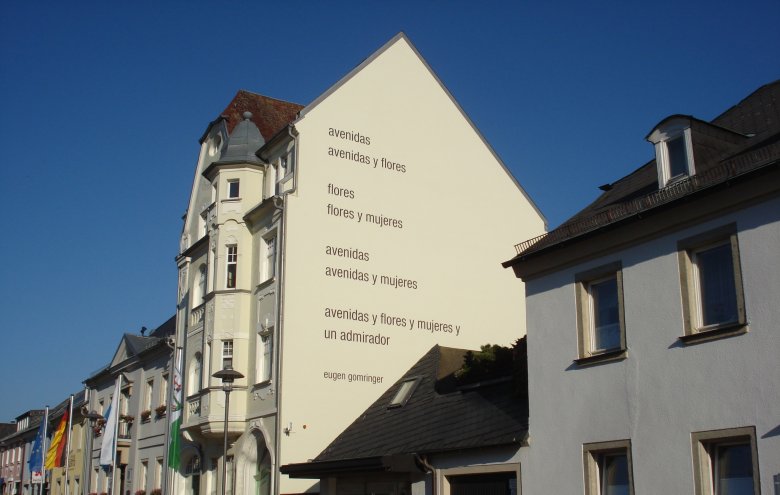 avenidas
avenidas y flores
flores
flores y mujeres
avenidas
avenidas y mujeres
avenidas y flores y mujeres y
un admirador
eugen gomringer